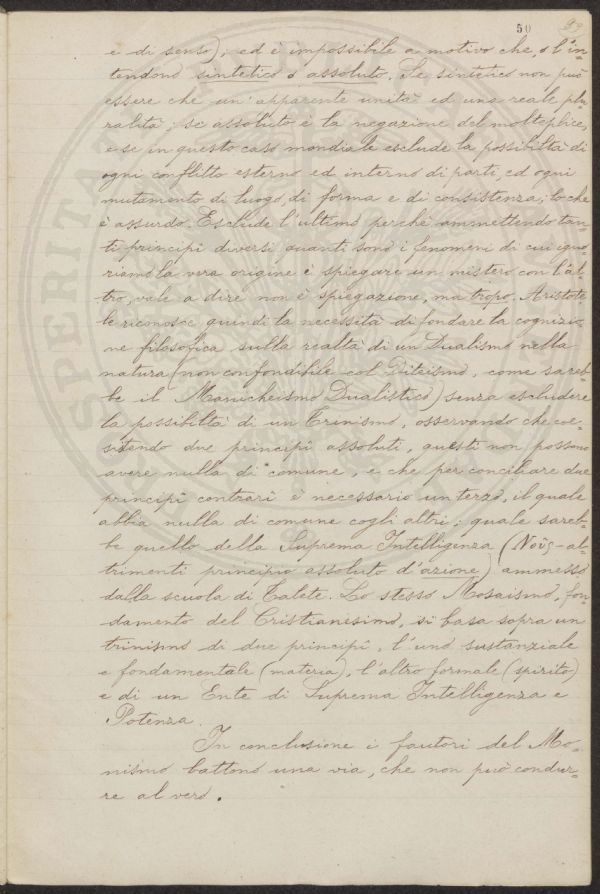 50 99
e di senso), ed è impossibile a motivo che, o l'in=
tendono sintetico o assoluto. Se sintetico non può
essere che un'apparente unità ed una reale plu=
ralità; se assoluto è la negazione del molteplice,
e se in questo caso mondiale esclude la possibiltà di
ogni conflitto esterno ed interno di parti, ed ogni
mutamento di luogo, di forma e di consistenza; lo che
è assurdo. Esclude l'ultimo perchè ammettendo tan=
ti principî diversi quanti sono i fenomeni di cui igno=
riamo la vera origine è spiegare un mistero con l'al=
tro, vale a dire non è spiegazione, ma tropo. Aristote=
le riconosce quindi la necessità di fondare la cognizio=
ne filosofica sulla realtà di un Dualismo nella
natura (non confondibile col Diteismo, come sareb=
be il Manicheismo Dualistico) senza escludere
la possibiltà di un Trinismo, osservando che coe=
sistendo due principî assoluti, questi non possono
avere nulla di comune, e che per conciliare due
principî contrarî è necessario un terzo, il quale
abbia nulla di comune cogli altri; quale sareb=
be quello della Suprema Intelligenza (Noῦς-al=
trimenti principio assoluto d'azione) ammesso
dalla scuola di Talete. Lo stesso Mosaismo, fon=
damento del Cristianesimo, si basa sopra un
trinismo di due principî, l'uno sustanziale
e fondamentale (materia), l'altro formale (spirito)
e di un Ente di Suprema Intelligenza e
Potenza.
In conclusione i fautori del Mo=
nismo battono una via, che non può condur=
re al vero.